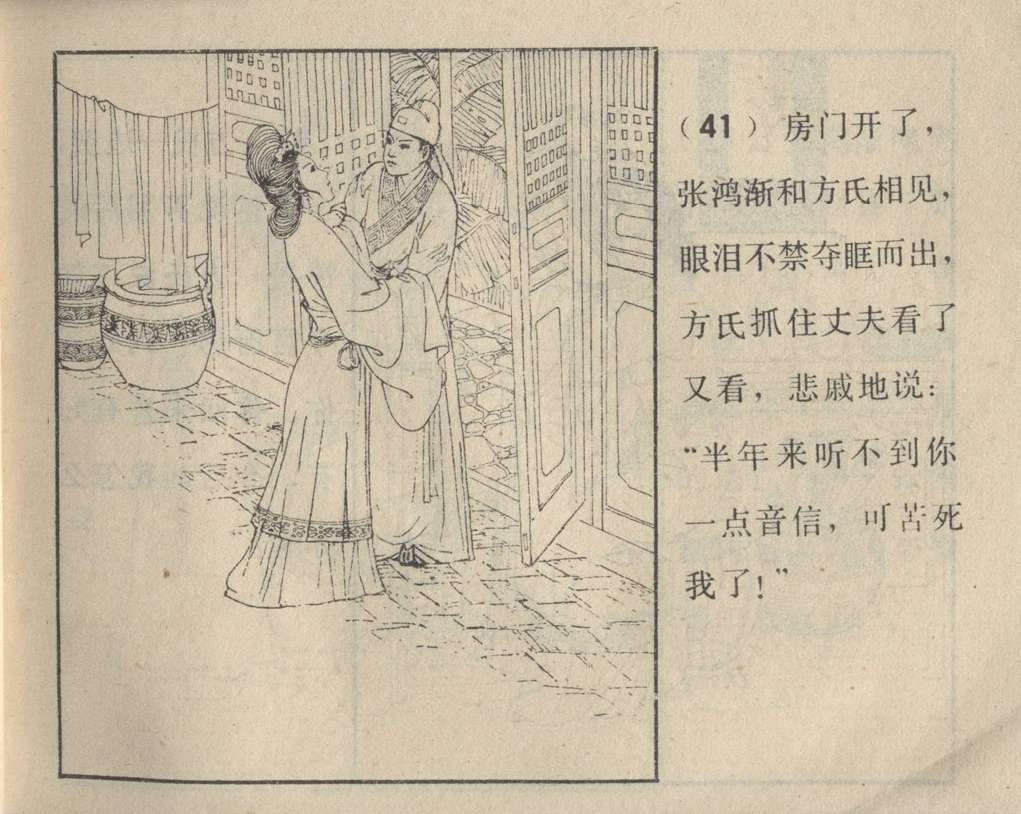 （41）房门开了，
张鸿渐和方氏相见，
眼泪不禁夺眶而出，
方氏抓住丈夫看了
又看，悲戚地说：
“半年来听不到你
一点音信，可苦死
我了！”